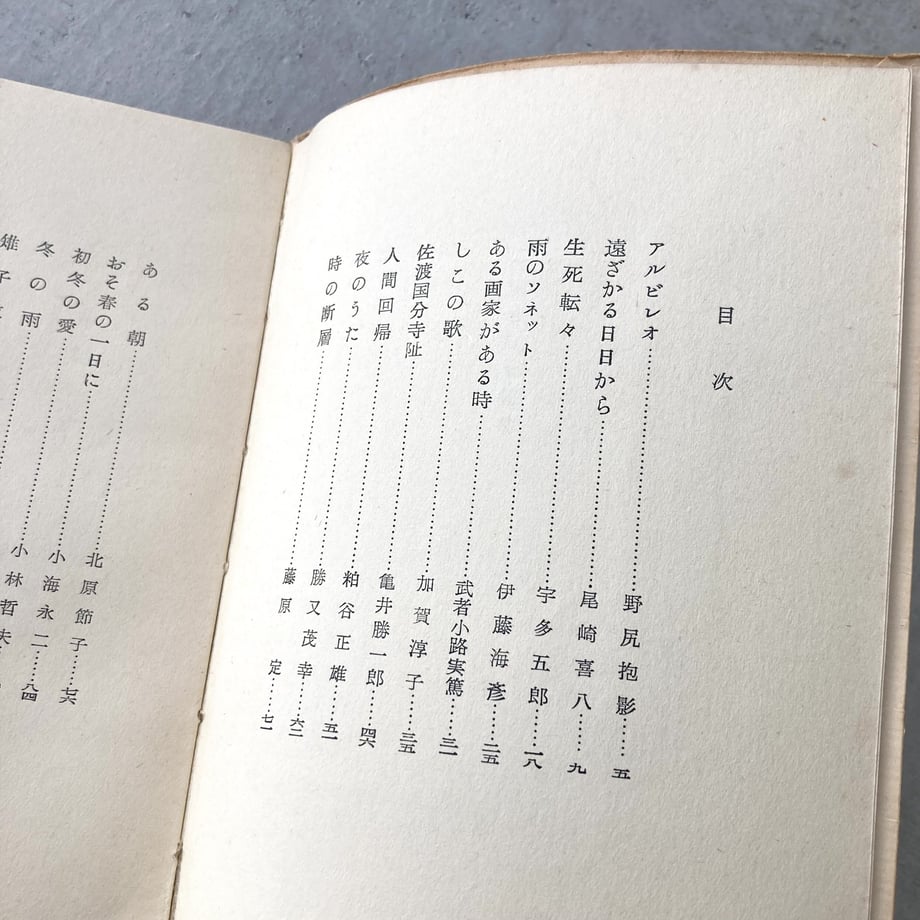 目次
アルビレオ……野尻抱影……五
遠ざかる日日から……尾崎喜八……九
生死転々……宇多五郎……一八
雨のソネット……伊藤海彦……二五
ある画家がある時……武者小路実篤……三一
しこの歌……加賀淳子……三五
佐渡国分寺阯……亀井勝一郎……四六
人間回帰……粕谷正雄……五一
夜のうた……勝又茂幸……六二
時の断層……藤原定……七一
ある朝……北原節子……七六
おそ春の一日に……小海永二……八四
初冬の愛……小林哲夫
冬の雨